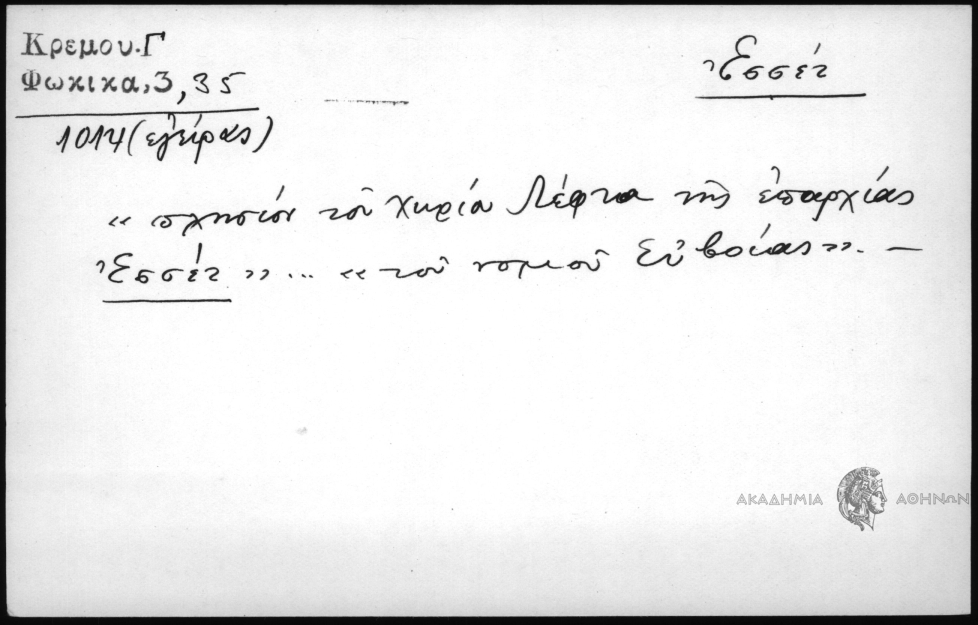 Κρεμου.Γ
Φωκικα,3,35
Ἐσσέτ
1014 (ἐγείρας)
« πλησίον τοῦ χωρίου Λέφτα τῆς ἐπαρχίας
Ἐσσέτ » ... « τοῦ νομοῦ Εὐβοίας ». —
ΑΚΑΔΗΜΙΑ ΑΘΗΝΩΝ